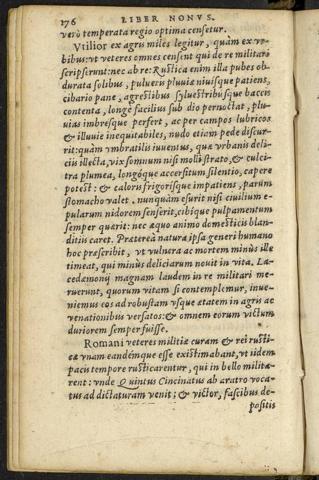 176 LIBER NONVS.
verò temperata regio optima censetur.
Vtilior ex agris miles legitur, quàm ex vr-
bibus: vt veteres omnes censent qui de re militari
scripserunt: nec ab re: Rustica enim illa pubes ob-
durata solibus, pulueris pluuiæ niuisque patiens,
cibario pane, agrestibus syluestribusque baccis
contenta, longè facilius sub dio pernoctat, plu-
uias imbresque perfert, ac per campos lubricos
& illuuie inequitabiles, nudo etiam pede discur-
rit: quàm vmbratilis iuuentus, quæ vrbanis deli-
ciis illecta, vix somnum nisi molli strato, & culci-
tra plumea, longóque accersitum silentio, capere
potest: & caloris frigorisque impatiens, parùm
stomacho valet. nunquàm esurit nisi ciuilium e-
pularum nidorem senserit, cibique pulpamentum
semper quærit: nec æquo animo domesticis blan-
ditiis caret. Prætereà natura ipsa generi humano
hoc præscribit, vt vulnera ac mortem minùs ille
timeat, qui minùs deliciarum nouit in vita. La-
cedæmonij magnam laudem in re militari me-
ruerunt, quorum vitam si contemplemur, inue-
niemus eos ad robustam vsque ætatem in agris ac
venationibus versatos: & omnem eorum victum
duriorem semper fuisse.
Romani veteres militiæ curam & rei rusti-
cæ vnam eandémque esse existimabant, vt iidem
pacis tempore rusticarentur, qui in bello militâ-
rent: vnde Quintus Cincinatus ab aratro voca-
tus ad dictaturam venit; & victor, fascibus de-
positis